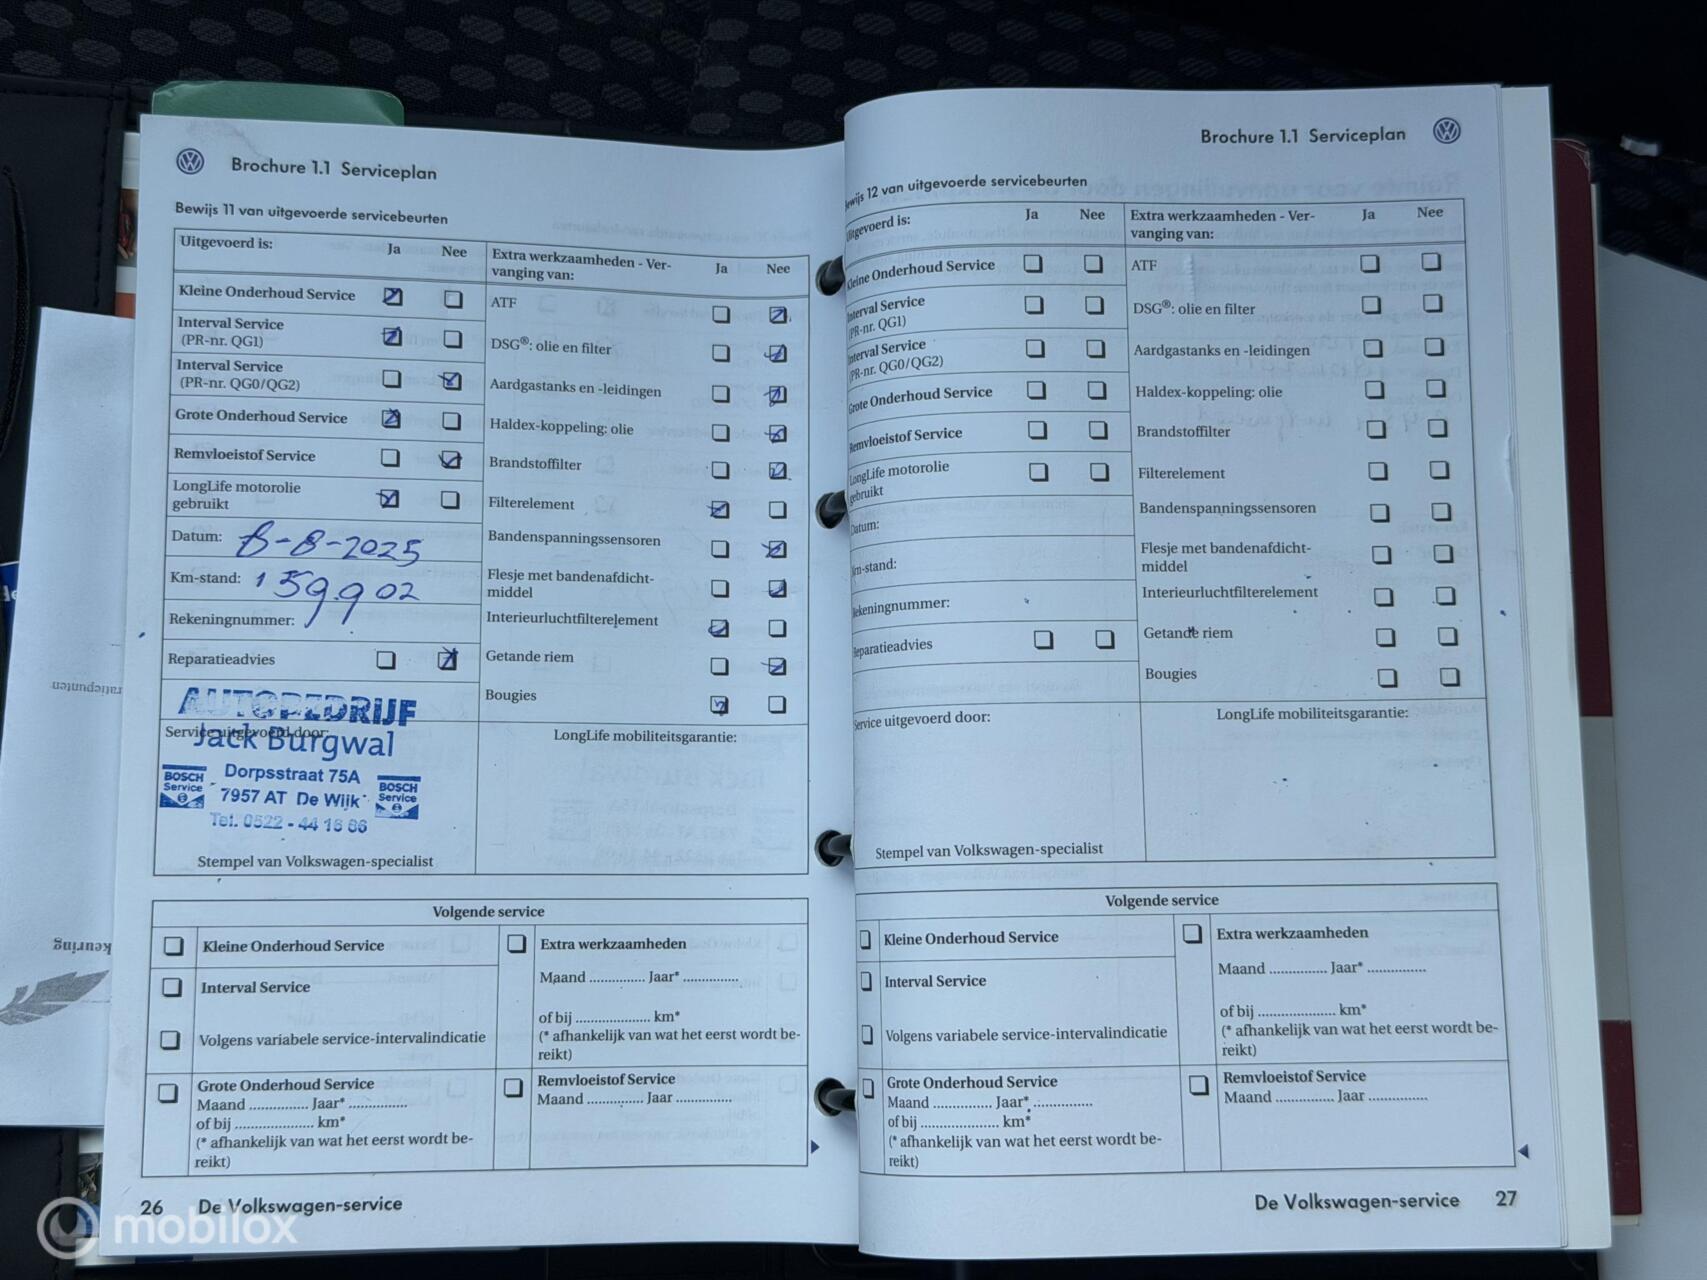 Brochure 1.1 Serviceplan
Bewijs 11 van uitgevoerde servicebeurten
Uitgevoerd is: Ja Nee
Kleine Onderhoud Service
Interval Service
(PR-nr. QG1)
Interval Service
(PR-nr. QG0/QG2)
Grote Onderhoud Service
Remvloeistof Service
LongLife motorolie
gebruikt
Datum: 8-8-2025
Km-stand: 159.902
Rekeningnummer:
Reparatieadvies
AUTOBEDRIJF
Service uitgevoerd door:
Jack Burgwal
BOSCH
Service
Dorpsstraat 75A
7957 AT De Wijk
Tel. 0522 - 44 16 86
BOSCH
Service
Stempel van Volkswagen-specialist
Extra werkzaamheden - Ver-
vanging van: Ja Nee
ATF
DSG®: olie en filter
Aardgastanks en -leidingen
Haldex-koppeling: olie
Brandstoffilter
Filterelement
Bandenspanningssensoren
Flesje met bandenafdicht-
middel
Interieurluchtfilterelement
Getande riem
Bougies
LongLife mobiliteitsgarantie:
Volgende service
Kleine Onderhoud Service
Interval Service
Volgens variabele service-intervalindicatie
Grote Onderhoud Service
Maand ............... Jaar* ...............
of bij .................... km*
(* afhankelijk van wat het eerst wordt be-
reikt)
Extra werkzaamheden
Maand .............. Jaar* ..............
of bij ................... km*
(* afhankelijk van wat het eerst wordt be-
reikt)
Remvloeistof Service
Maand .............. Jaar ..............
26 De Volkswagen-service
Brochure 1.1 Serviceplan
Bewijs 12 van uitgevoerde servicebeurten
Uitgevoerd is: Ja Nee
Kleine Onderhoud Service
Interval Service
(PR-nr. QG1)
Interval Service
(PR-nr. QG0/QG2)
Grote Onderhoud Service
Remvloeistof Service
LongLife motorolie
gebruikt
Datum:
Km-stand:
Rekeningnummer:
Reparatieadvies
Service uitgevoerd door:
Stempel van Volkswagen-specialist
Extra werkzaamheden - Ver-
vanging van: Ja Nee
ATF
DSG®: olie en filter
Aardgastanks en -leidingen
Haldex-koppeling: olie
Brandstoffilter
Filterelement
Bandenspanningssensoren
Flesje met bandenafdicht-
middel
Interieurluchtfilterelement
Getande riem
Bougies
LongLife mobiliteitsgarantie:
Volgende service
Kleine Onderhoud Service
Interval Service
Volgens variabele service-intervalindicatie
Grote Onderhoud Service
Maand ............... Jaar* ...............
of bij .................... km*
(* afhankelijk van wat het eerst wordt be-
reikt)
Extra werkzaamheden
Maand ............... Jaar* ...............
of bij .................... km*
(* afhankelijk van wat het eerst wordt be-
reikt)
Remvloeistof Service
Maand ............... Jaar ...............
De Volkswagen-service 27
keuring
mobilox